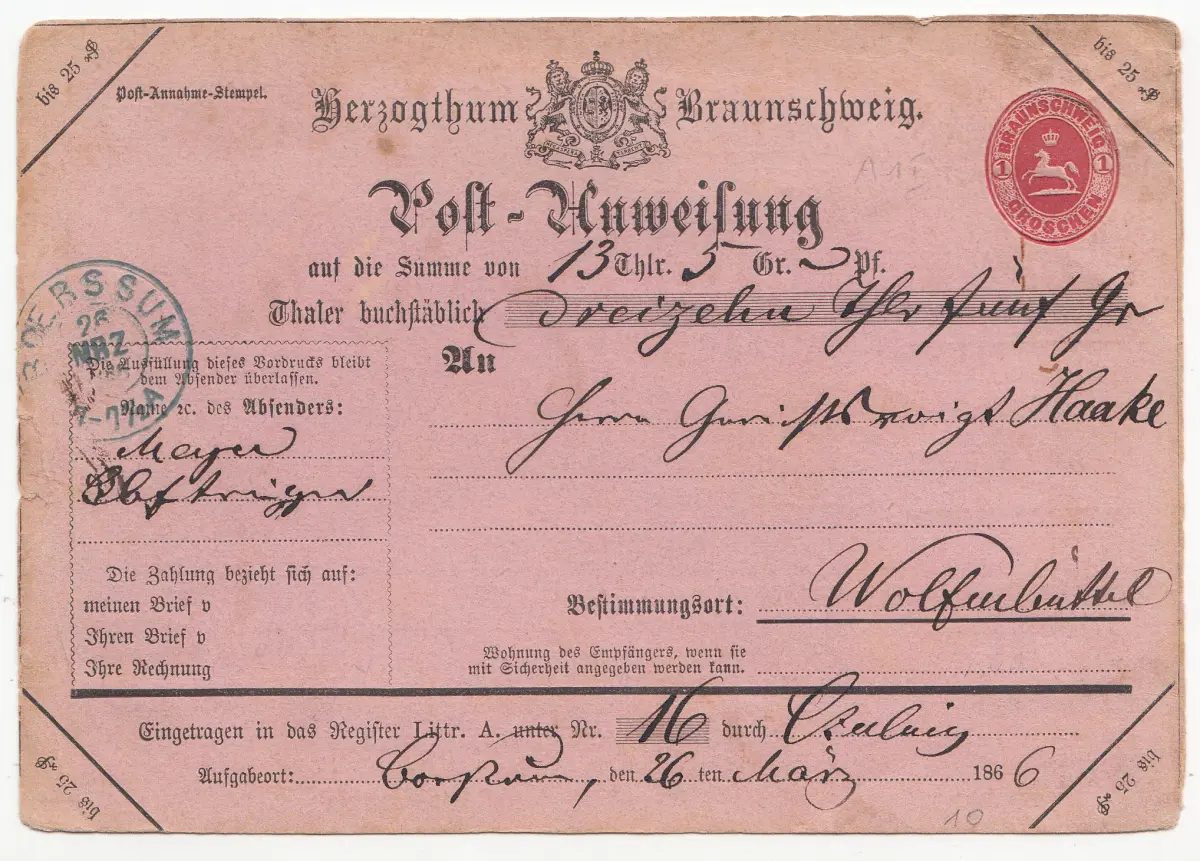 bis 25
bis 25
Post-Annahme-Stempel.
Herzogthum Braunschweig.
BRAUNSCHWEIG
1 1
GROSCHEN
A 1
Post-Anweisung
auf die Summe von 13 Thlr. 5 Gr. Pf.
Thaler buchstäblich Dreizehn Thlr fünf Gr
BOERSSUM
26
MRZ
An
Die Ausfüllung dieses Vordrucks bleibt
dem Absender überlassen.
Name ꝛc. des Absenders:
Herrn Gerichtsvoigt Haake
Meyer
Die Zahlung bezieht sich auf:
meinen Brief v
Ihren Brief v
Ihre Rechnung
Bestimmungsort: Wolfenbüttel
Wohnung des Empfängers, wenn sie
mit Sicherheit angegeben werden kann.
Eingetragen in das Register Littr. A. unter Nr. 16 durch
Aufgabeort: Borssum, den 26 ten März 1866
bis 25
bis 25
10